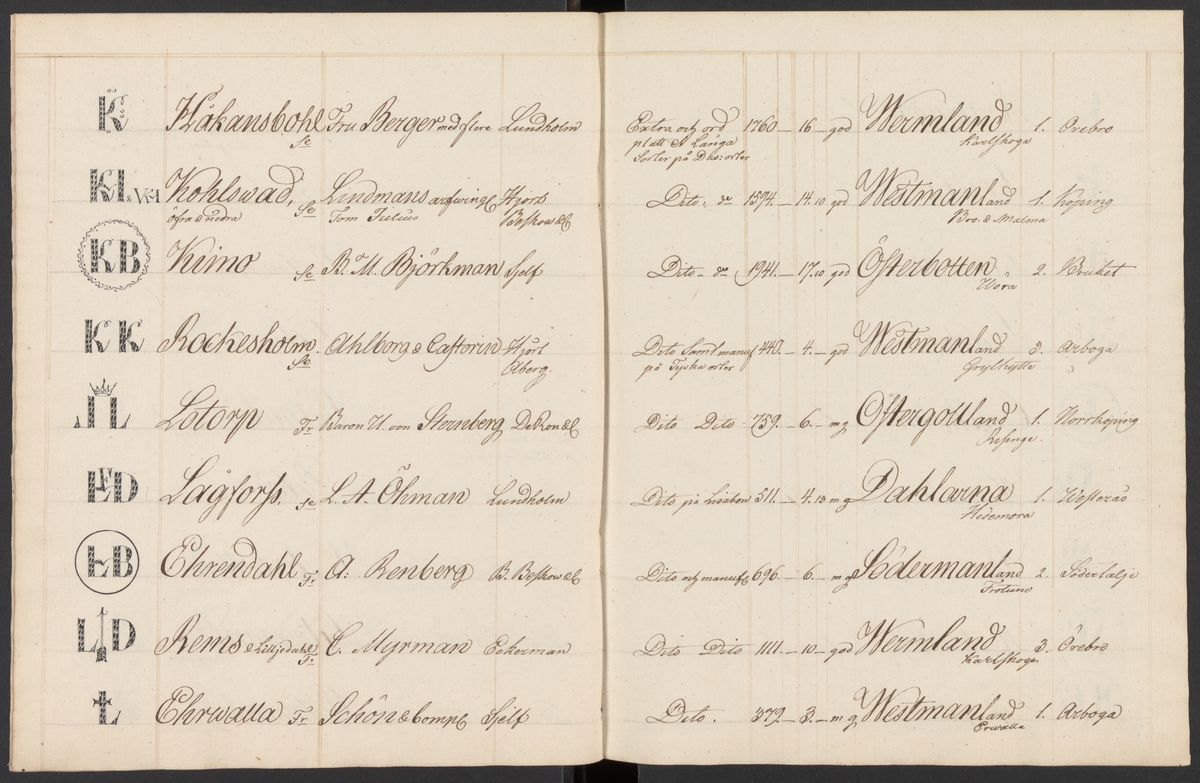 K Håkansbohl Se Fru Berger med flere Lundholm Extra och ord 1760 - 16 - god Wermland 1. Örebro
platt & Långa Karlskoga
Sorter på Div: orter
KL & VKI Kohlswad, Se Lindmans arfwing Hjort Dito: do 1594. - 14.10 god Westmanland 1. Köping
öfra & nedra Tom Julius Beskow &C Bro. & Malma
KB Kimo Se B. M. Björkman Sjelf Dito - do 1941. - 17.10 god Österbotten 2. Bruket
Wörå
KK Rockesholm. Se Ahlborg & Castorin Hjort Dito Samt manuf 440. - 4. - god Westmanland 3. Arboga
Åberg. på Tyska orter Grythytte
L Lotorp Fr Baron U. von Sternberg DeRon &C Dito Dito 759. - 6. - m g Östergottland 1. Norrköping
Risinge.
LFD Lågforss. Se L. A. Öhman Lundholm Dito på Lisabon 511. - 4.13 m g Dahlarna 1. Westerås
Hedemora
LB Ehrendahl Fr A: Renberg B. Beskow &C Dito och manuf 696. - 6. - m g Södermanland 2. Södertälje
Frötuna
LD Rems & Lilljedahl Fr C. Myrman Eckerman Dito Dito 1111. - 10 - god Wermland 3. Örebro
Karlskoga
L Ehrwalla Fr Schön & Comp Sjelf Dito. 379. - 3. - m g Westmanland 1. Arboga
Erwalla